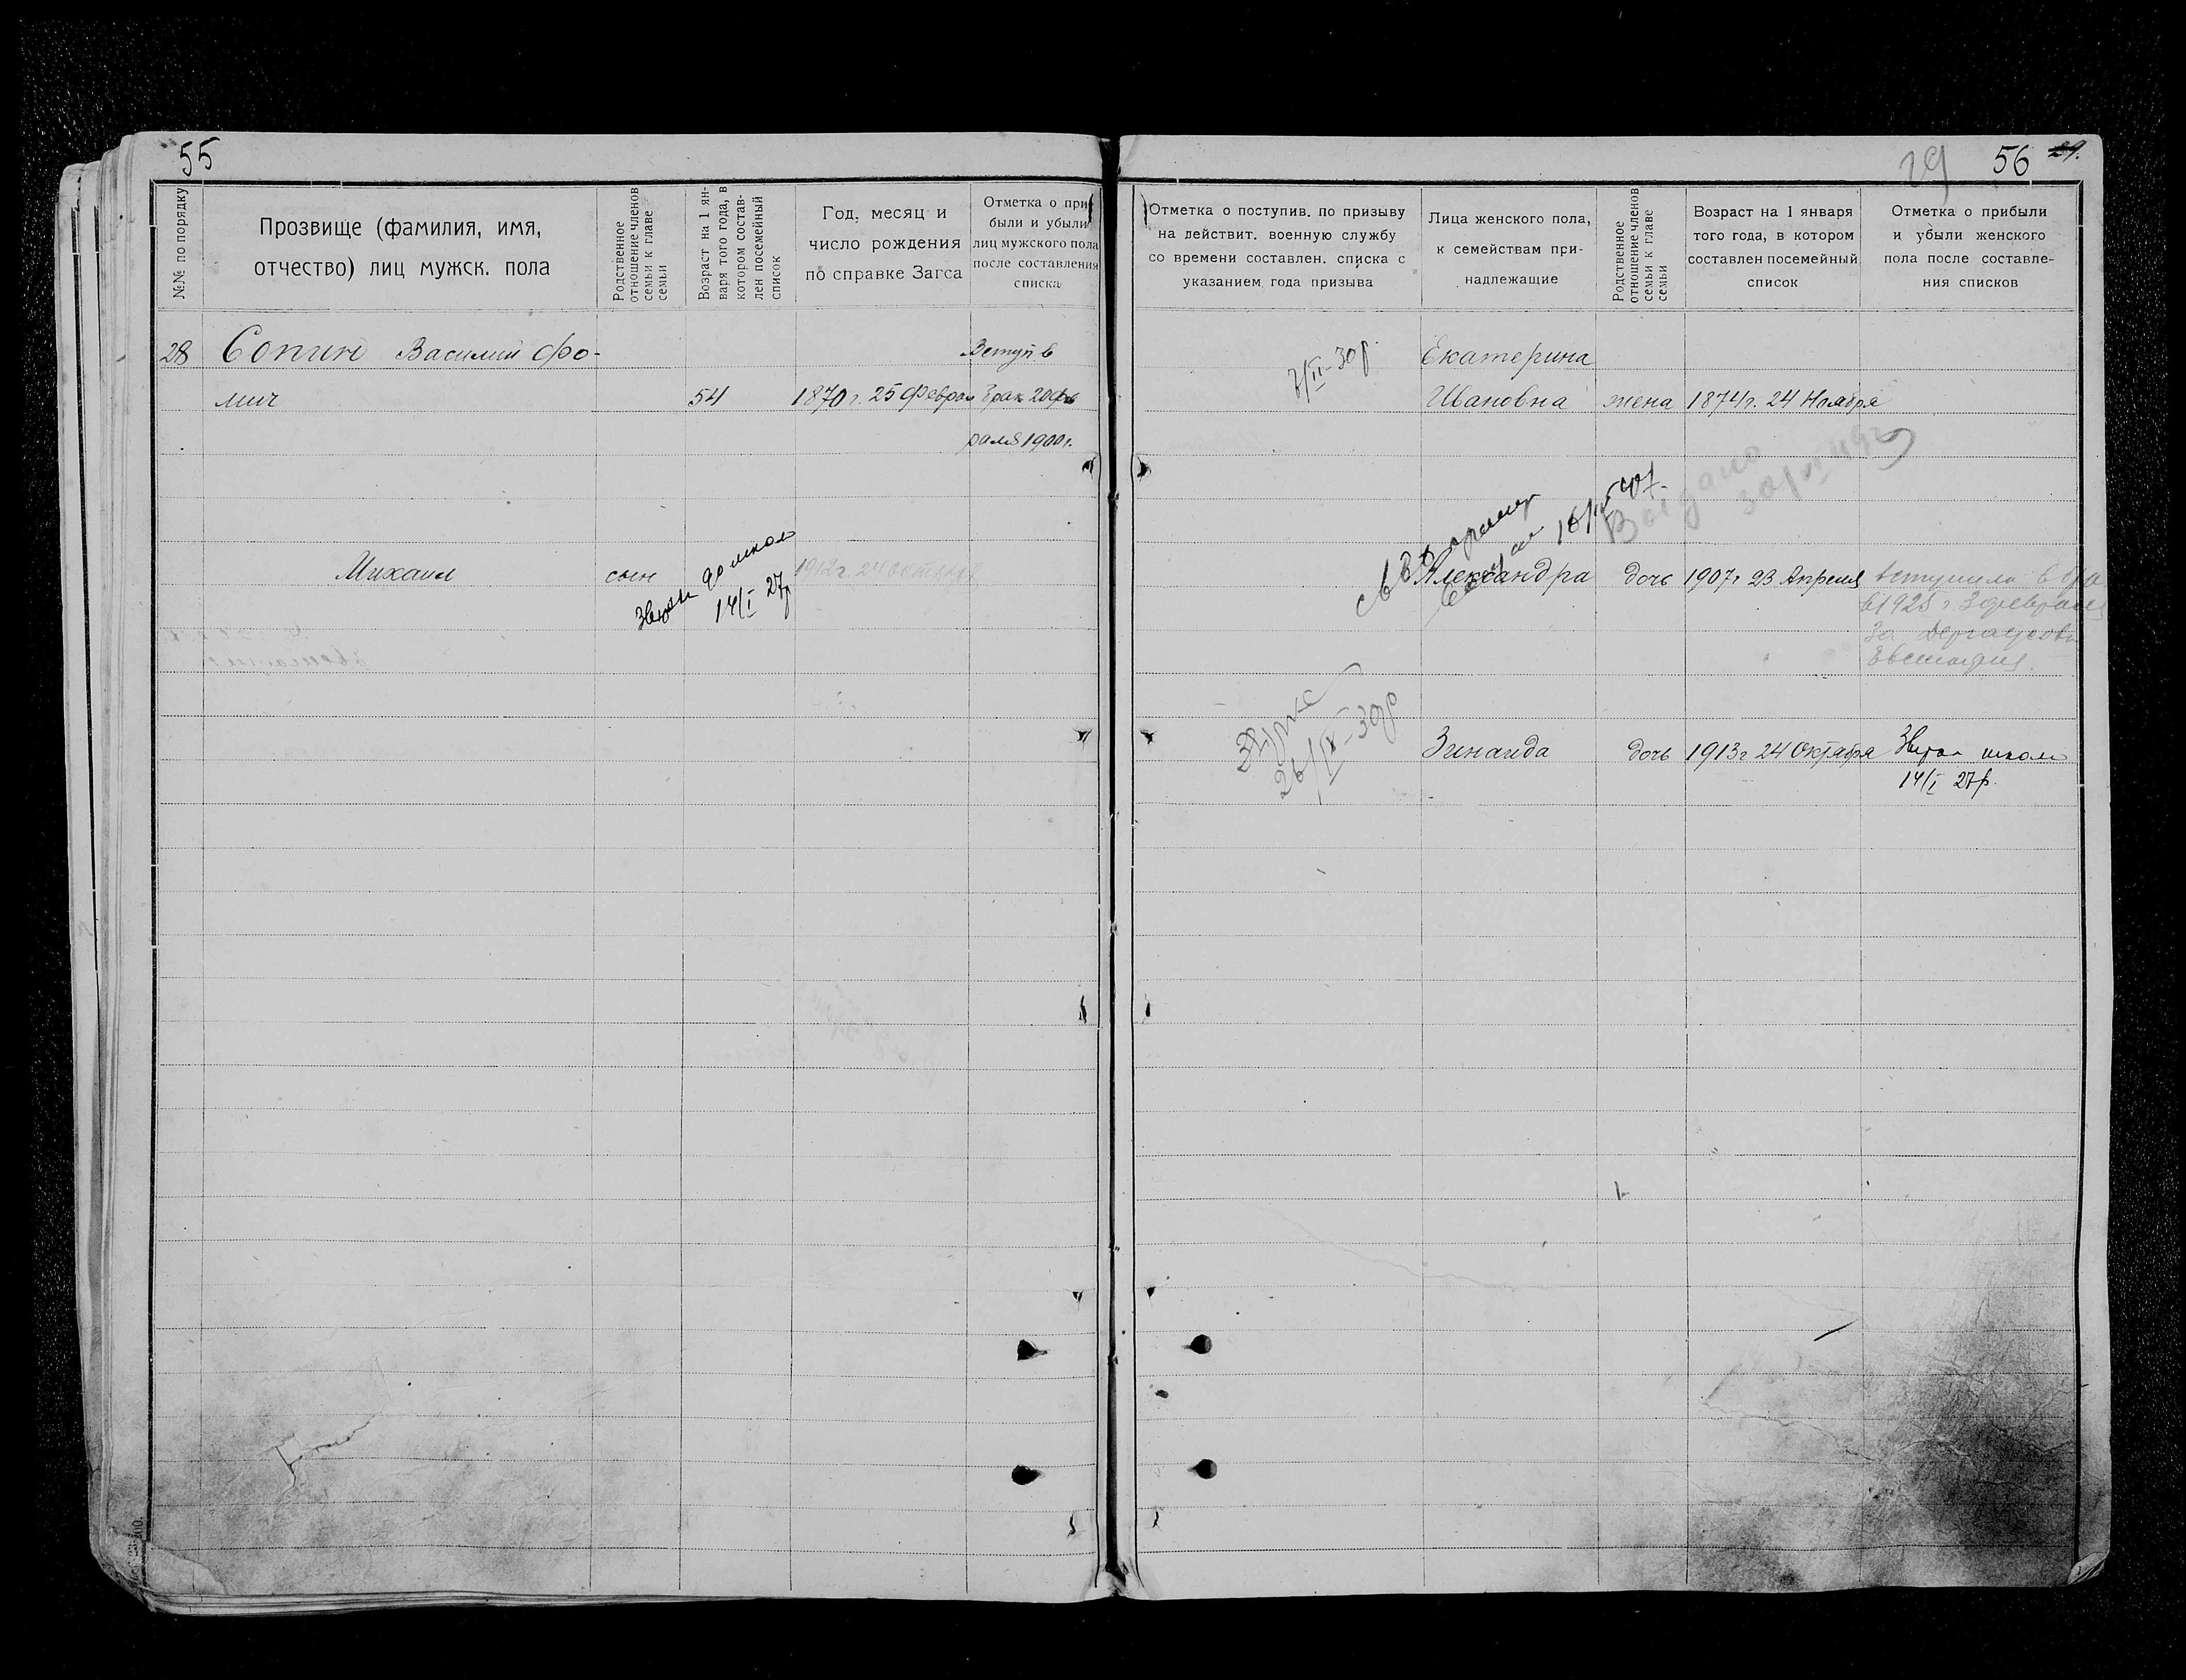 55
№№ по порядку
Прозвище (фамилия, имя,
отчество) лиц мужск. пола
Родственное
отношение членов
семьи к главе
семьи
Возраст на 1 ян-
варя того года, в
котором состав-
лен посемейный
список
Год, месяц и
число рождения
по справке Загса
Отметка о при-
были и убыли
лиц мужского пола
после составления
списка
28 Сопин Василий Фо-
мич 54 1870 г. 25 Феврал
Вступ. в
брак 20 Фев
раля 1900 г.
Михаил сын 1912 г. 24 Октября
14/I 27 г
56 29.
29
Отметка о поступив. по призыву
на действит. военную службу
со времени составлен. списка с
указанием года призыва
Лица женского пола,
к семействам при-
надлежащие
Родственное
отношение членов
семьи к главе
семьи
Возраст на 1 января
того года, в котором
составлен посемейный
список
Отметка о прибыли
и убыли женского
пола после составле-
ния списков
7/II-30 г.
Екатерина
Ивановна жена 1874 г. 24 Ноября
Выдано
Александра дочь 1907 г 23 Апреля вступила в бра
в 1925 г 3 февраля
За
Евстафия
26/IV-30 г
Зинаида дочь 1913 г 24 Октября
школ
14/I 27 г.